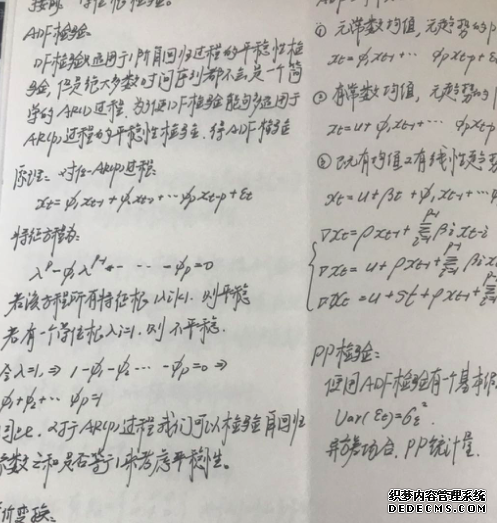 ADF检验
DF检验只适用于1阶自回归过程的平稳性检
验,但是绝大多数时间序列都不会是一个简
单的AR(1)过程,为了使DF检验能够适用于
AR(p)过程的平稳性检验,得ADF检验
原理:对任一AR(p)过程:
xt=φ1xt-1+φ2xt-2+···φpxt-p+εt
特征方程为:
λ^p-φ1λ^p-1- ··· -φp=0
若该方程所有特征根|λi|<1,则平稳
若有一个特征根λi=1,则不平稳.
令λ=1,⇒ 1-φ1-φ2 ··· -φp=0 ⇒
φ1+φ2+··· φp=1
因此,对于AR(p)过程我们可以检验自回归
系数之和是否等于1来考虑平稳性。
① 无常数均值,无趋势的p
xt=φ1xt-1+··· φpxt-p+ε
② 有常数均值,无趋势的p
xt=u+φ1xt-1+··· φpxt-p
③ 既有均值又有线性趋势
xt=u+βt+φ1xt-1+···φ
∇xt=ρxt-1+Σβi∇xt-i
∇xt=u+ρxt-1+Σβi
∇xt=u+δt+ρxt-1+Σ
PP检验:
使用ADF检验有一个基本
Var(εt)=σε²
异方差场合,PP统计量.
织梦内容管理系统
DEDECMS.COM